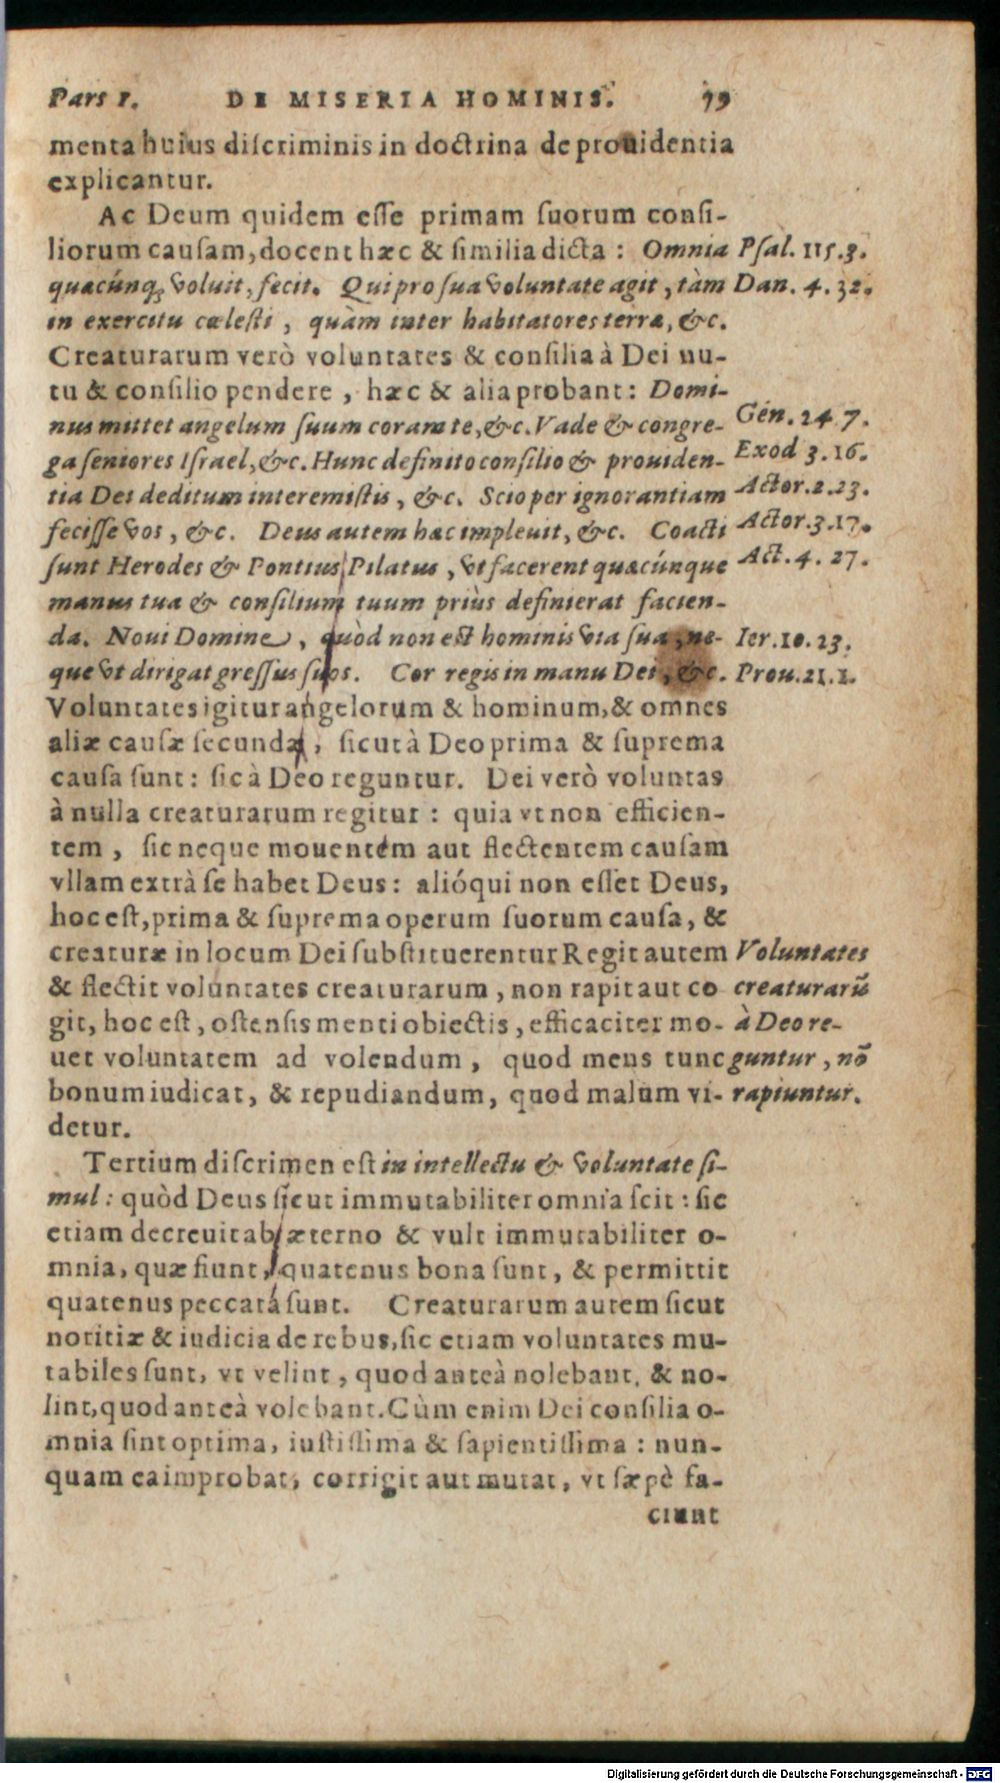 Pars 1. DE MISERIA HOMINIS. 79
menta huius discriminis in doctrina de prouidentia
explicantur.
Ac Deum quidem esse primam suorum consi-
liorum causam, docent hæc & similia dicta : Omnia Psal. 115.3.
quæcúnq; voluit, fecit. Qui pro sua voluntate agit, tàm Dan. 4. 32.
in exercitu cœlesti, quàm inter habitatores terræ, &c.
Creaturarum verò voluntates & consilia à Dei nu-
tu & consilio pendere, hæc & alia probant: Domi-
nus mittet angelum suum coram te, &c. Vade & congre- Gen. 24 7.
ga seniores Israel, &c. Hunc definito consilio & prouiden- Exod 3.16.
tia Dei deditum interemistis, &c. Scio per ignorantiam Actor.2.23.
fecisse vos, &c. Deus autem hæc impleuit, &c. Coacti Actor.3.17.
sunt Herodes & Pontius Pilatus, vt facerent quæcúnque Act. 4. 27.
manus tua & consilium tuum priùs definierat facien-
da. Noui Domine, quòd non est hominis via sua, ne- Ier.10.23.
que vt dirigat gressus suos. Cor regis in manu Dei, &c. Prou.21.1.
Voluntates igitur angelorum & hominum, & omnes
aliæ causæ secundæ, sicut à Deo prima & suprema
causa sunt: sic à Deo reguntur. Dei verò voluntas
à nulla creaturarum regitur : quia vt non efficien-
tem, sic neque mouentem aut flectentem causam
vllam extrà se habet Deus: alióqui non esset Deus,
hoc est, prima & suprema operum suorum causa, &
creaturæ in locum Dei substituerentur Regit autem Voluntates
& flectit voluntates creaturarum, non rapit aut co creaturarū
git, hoc est, ostensis menti obiectis, efficaciter mo- à Deo re-
uet voluntatem ad volendum, quod mens tunc guntur, nō
bonum iudicat, & repudiandum, quod malum vi- rapiuntur.
detur.
Tertium discrimen est in intellectu & voluntate si-
mul: quòd Deus sicut immutabiliter omnia scit : sic
etiam decreuit ab æterno & vult immutabiliter o-
mnia, quæ fiunt, quatenus bona sunt, & permittit
quatenus peccata sunt. Creaturarum autem sicut
notitiæ & iudicia de rebus, sic etiam voluntates mu-
tabiles sunt, vt velint, quod anteà nolebant, & no-
lint, quod anteà volebant. Cùm enim Dei consilia o-
mnia sint optima, iustissima & sapientissima : nun-
quam ea improbat, corrigit aut mutat, vt sæpè fa-
ciunt
Digitalisierung gefördert durch die Deutsche Forschungsgemeinschaft - DFG